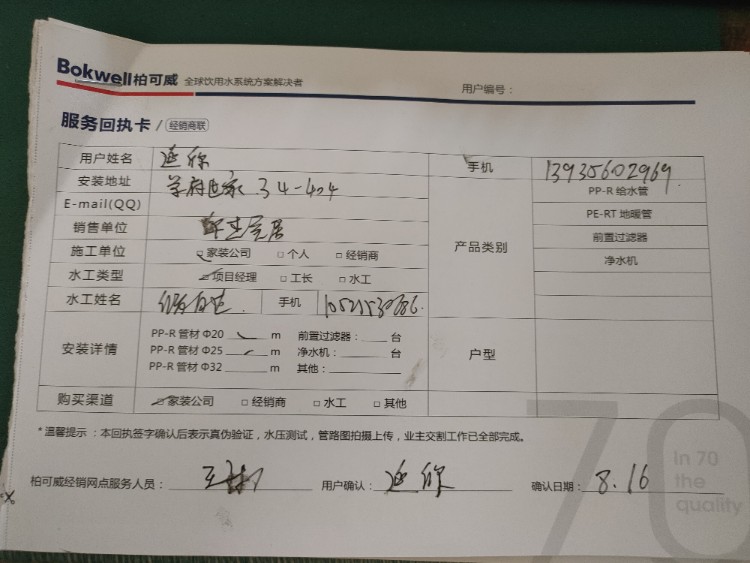 Bokwell柏可威 全球饮用水系统方案解决者
用户编号：
服务回执卡 / 经销商联
用户姓名 手机 13935602969
安装地址 学府世家 34-404 PP-R 给水管
E-mail(QQ) PE-RT 地暖管
销售单位 产品类别 前置过滤器
施工单位 □家装公司 □个人 □经销商 净水机
水工类型 □项目经理 □工长 □水工
水工姓名 手机
安装详情 PP-R 管材 Φ20 m 前置过滤器： 台 户型
PP-R 管材 Φ25 m 净水机： 台
PP-R 管材 Φ32 m 其他：
购买渠道 □家装公司 □经销商 □水工 □其他
*温馨提示：本回执签字确认后表示真伪验证，水压测试，管路图拍摄上传，业主交割工作已全部完成。
柏可威经销网点服务人员： 用户确认： 确认日期： 8.16
70
In 70
the
quality